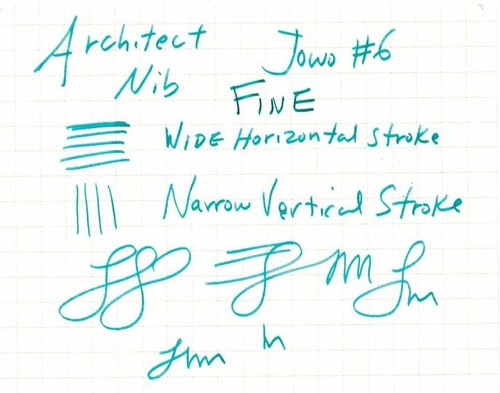 Architect Jowo #6
Nib FINE
WIDE Horizontal Stroke
Narrow Vertical Stroke